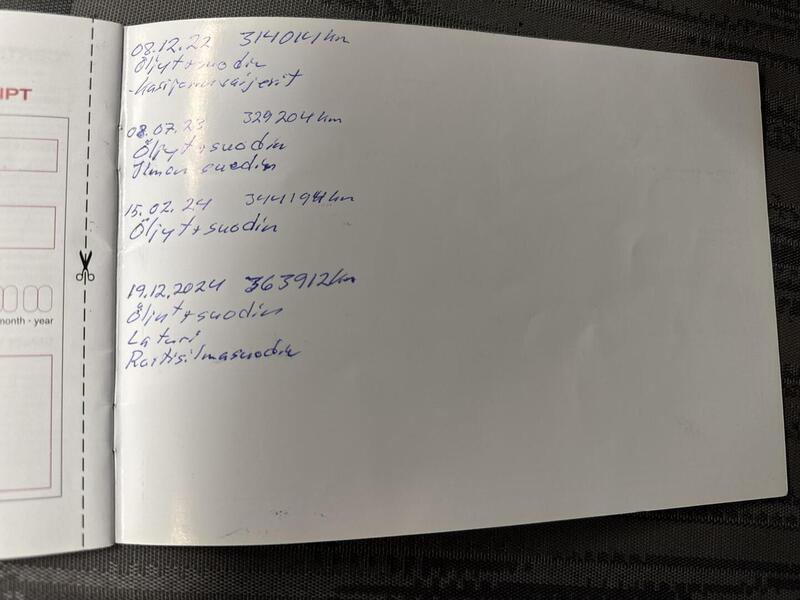 IPT
month - year
08.12.22 314014km
Öljyt+suodin
-käsijarruvaijerit
08.07.23 329204km
Öljyt+suodin
Ilman suodin
15.02.24 344194km
Öljyt+suodin
19.12.2024 363912km
Öljyt+suodin
Laturi
Raitisilmasuodin